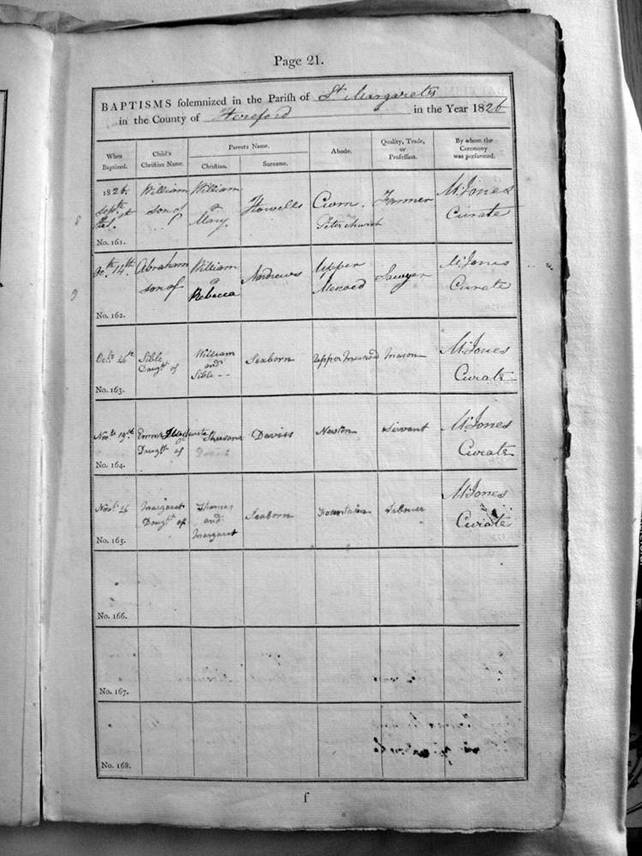 Page 21.
BAPTISMS solemnized in the Parish of St. Margarets
in the County of Hereford in the Year 1826
When Baptized. Child's Christian Name. Parents Name. Christian. Surname. Abode. Quality, Trade, or Profession. By whom the Ceremony was performed.
1826 William William Howells Cwm Farmer M. Jones
Septr son of & Peterchurch Curate
Mary
No. 161.
14th. Abraham William Andrews Upper Sawyer M. Jones
son of & Curate
Rebecca
No. 162.
Octr Sible William Seaborn Upper Mason M. Jones
Daught of and Curate
Sible
No. 163.
Novr 19th Davies Newton Servant M. Jones
Daught of Curate
No. 164.
Novr Margaret Thomas Seaborn Labourer M. Jones
Daught of and Curate
Margaret
No. 165.
No. 166.
No. 167.
No. 168.
f